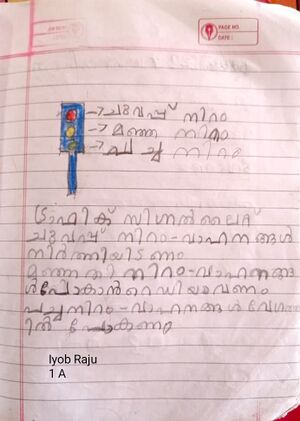 PAGE NO.
DATE :
→ ചുവപ്പ് നിറം
→ മഞ്ഞ നിറം
→ പച്ച നിറം
ട്രാഫിക് സിഗ്നൽ ലൈറ്റ്
ചുവപ്പ് നിറം-വാഹനങ്ങൾ
നിർത്തിയിടണം
മഞ്ഞ നിറം-വാഹനങ്ങ
ൾ പോകാൻ റെഡിയാവണം
പച്ച നിറം-വാഹനങ്ങൾ വേഗത്
തിൽ പോകണം
Iyob Raju
1 A